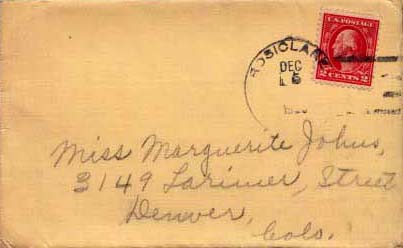 ROSICLARE
DEC
5
U.S. POSTAGE
2 CENTS 2
Miss Marguerite Johns,
3149 Larimer, Street
Denver,
Colo.